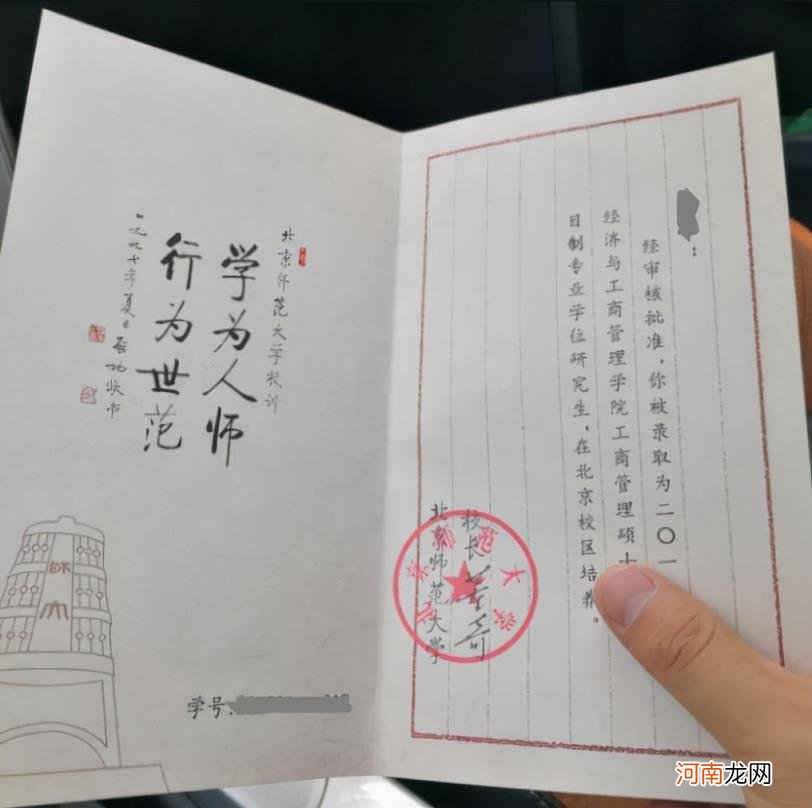 北京师范大学校训
学为人师
行为世范
一九九七年夏日启功敬书
师大
学号:
:
经审核批准,你被录取为二〇一
经济与工商管理学院工商管理硕
日制专业学位研究生,在北京校区培养。
校长 董奇
北京师范大学
北京师范大学
河南龙网